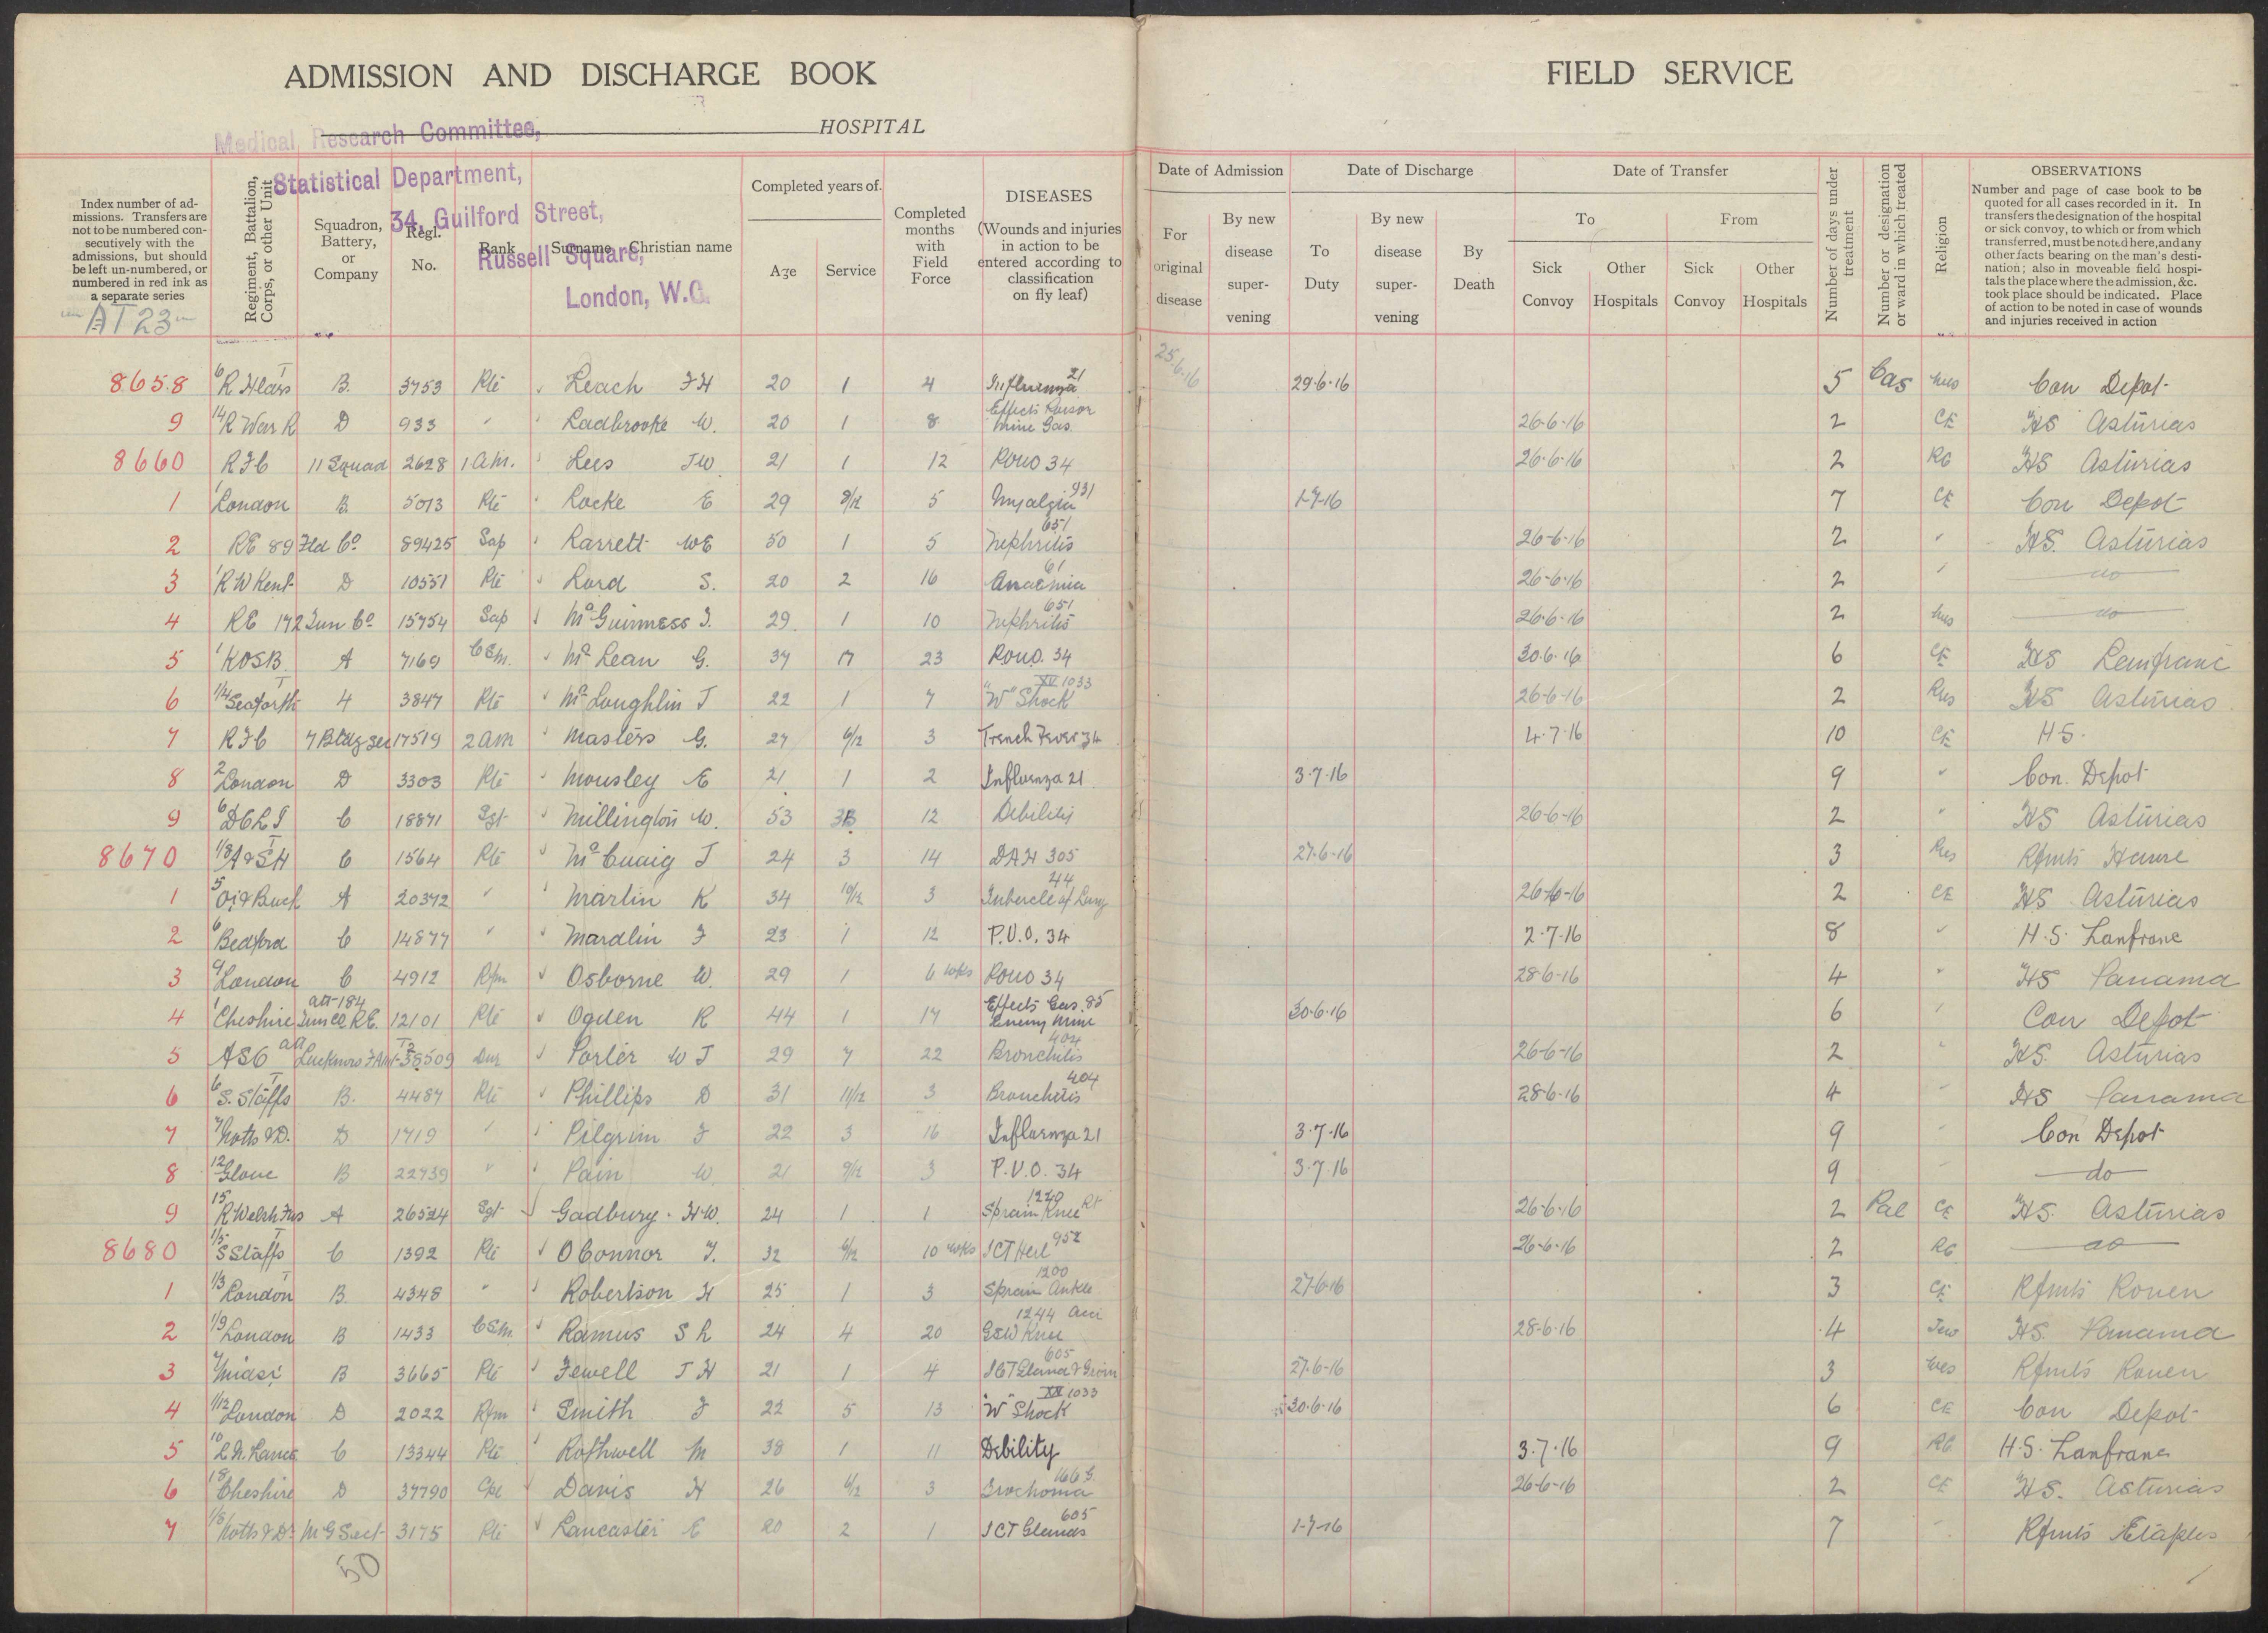 ADMISSION AND DISCHARGE BOOK
HOSPITAL
Medical Research Committee,
Statistical Department,
34, Guilford Street,
Russell Square,
London, W.C.
Index number of admissions. Transfers are not to be numbered consecutively with the admissions, but should be left un-numbered, or numbered in red ink as a separate series
Regiment, Battalion, Corps, or other Unit
Squadron, Battery, or Company
Regl. No.
Rank
Surname Christian name
Completed years of
Age
Service
Completed months with Field Force
DISEASES
(Wounds and injuries in action to be entered according to classification on fly leaf)
AT 23
8658 6 R Highrs T B 3753 Pte Leach 20 1 4 Influenza 21
9 14 R War R D 933 " Ladbrooke W. 20 1 8 Effects Poison Mine Gas.
8660 RFC 11 Squad 2628 1 AM. Lees JW 21 1 12 PUO 34
1 1 London B 5013 Pte Locke E 29 9/12 5 Myalgia 931
2 RE 89 Fld Co 89425 Sap Larrett WE 50 1 5 Nephritis 651
3 1 RW Kent D 10551 Pte Lord S. 20 2 16 Anaemia 61
4 RE 172 Tun Co 15754 Sap McGuinness J. 29 1 10 Nephritis 651
5 1 KOSB A 7169 CSM. McLean G. 37 17 23 PUO. 34
6 1/4 Seaforth T 4 3847 Pte McLoughlin J 22 1 7 "W" Shock XV 1033
7 RFC 17519 2 AM Masters G. 27 6/12 3 Trench Fever 34
8 2 London D 3303 Pte Mousley E 21 1 2 Influenza 21
9 6 DCLI C 18871 Sgt Millington W. 53 12 Debility
8670 1/8 A & SH T C 1564 Pte McCuaig J 24 3 14 DAH 305
1 5 Ox & Buck A 20372 " Martin K 34 10/12 3 Tubercle of Lung 44
2 6 Bedford C 14877 " Mardlin F 23 1 12 P.U.O. 34
3 9 London C 4912 Rfm Osborne W. 29 1 6 wks PUO 34
4 1 Cheshire att 184 Tun Co RE. 12101 Pte Ogden R 44 1 17 Effects Gas. 85 Enemy Mine
5 ASC att Lucknow FAmb 38509 Dvr Porter WJ 29 7 22 Bronchitis 404
6 6 S. Staffs T B. 4487 Pte Phillips D 31 11/12 3 Bronchitis 404
7 7 Notts & D. D 1719 " Pilgrim F 22 3 16 Influenza 21
8 12 Glouc B 22739 " Pain W. 21 9/12 3 P.U.O. 34
9 15 R Welsh Fus A 26524 Sgt Gadbury HW. 24 1 1 Sprain Knee Rt 1220
8680 1/5 S Staffs T C 1392 Pte OConnor 32 6/12 10 wks ICT Heel 952
1 1/3 London T B 4348 " Robertson H 25 1 3 Sprain Ankle 1200
2 1/9 London B 1433 CSM. Ramus S L 24 4 20 GSW Knee 1244 Acci
3 7 Middx B 3665 Pte Fewell J H 21 1 4 ICT Gland & Groin 605
4 1/12 London D 2022 Rfm Smith F 22 5 13 "W" Shock XX 1033
5 10 L.N. Lancs C 13344 Pte Rothwell M 38 1 11 Debility
6 18 Cheshire D 37790 Cpl Davis H 26 6/12 3 Trachoma 166
7 1/8 Notts & D. MG Sect 3175 Pte Lancaster E 20 2 1 ICT Glands 605
50
FIELD SERVICE
Date of Admission
For original disease
By new disease supervening
Date of Discharge
To Duty
By new disease supervening
By Death
Date of Transfer
To
Sick Convoy
Other Hospitals
From
Sick Convoy
Other Hospitals
Number of days under treatment
Number or designation or ward in which treated
Religion
OBSERVATIONS
Number and page of case book to be quoted for all cases recorded in it. In transfers the designation of the hospital or sick convoy, to which or from which transferred, must be noted here, and any other facts bearing on the man's destination; also in moveable field hospitals the place where the admission, &c. took place should be indicated. Place of action to be noted in case of wounds and injuries received in action
25.6.16 29.6.16 5 Cas Wes Con Depot
26-6-16 2 CE HS Asturias
26.6.16 2 RC HS Asturias
1-7-16 7 CE Con Depot
26-6-16 2 " HS. Asturias
26-6-16 2 " do
26.6.16 2 do
30.6.16 6 CE HS Lanfranc
26-6-16 2 Pres HS Asturias
4.7.16 10 CE HS.
3.7.16 9 " Con. Depot
26-6-16 2 " HS Asturias
27-6-16 3 Pres Rfmts Havre
26-6-16 2 CE HS Asturias
2.7.16 8 " H.S. Lanfranc
28-6-16 4 " HS Panama
30-6-16 6 " Con Depot
26-6-16 2 " HS. Asturias
28-6-16 4 " HS Panama
3.7.16 9 " Con Depot
3.7.16 9 " do
26-6-16 2 Pal CE HS. Asturias
26-6-16 2 RC do
27-6-16 3 CE Rfmts Rouen
28-6-16 4 Jew HS. Panama
27-6-16 3 Wes Rfmts Rouen
30-6-16 6 CE Con Depot
3.7.16 9 RC H.S. Lanfranc
26-6-16 2 CE HS. Asturias
1-7-16 7 " Rfmts Etaples